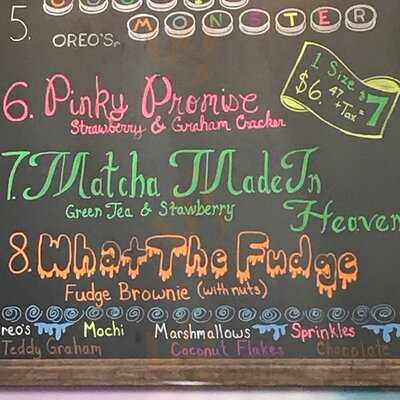 5.
MONSTER
OREO'S
1 Size $
$6.47 + Tax = 7
6. Pinky Promise
Strawberry & Graham Cracker
7. Matcha Made In
Green Tea & Stawberry
Heaven
8. What The Fudge
Fudge Brownie (with nuts)
reo's Mochi Marshmallows Sprinkles
Teddy Graham Coconut Flakes Chocolate